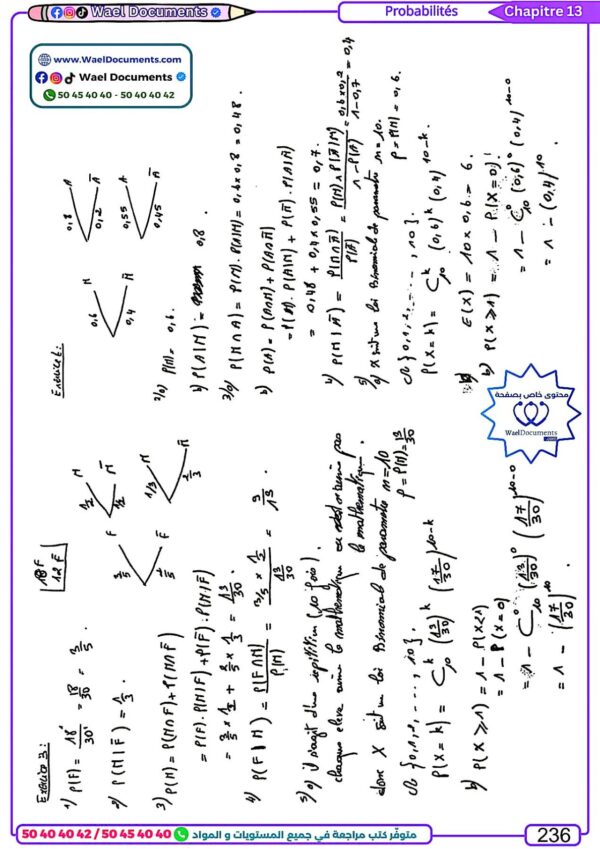 Wael Documents
Probabilités
Chapitre 13
www.WaelDocuments.Com
Wael Documents
50 45 40 40 - 50 40 40 42
Exercice 3:
18F
12F̄
1) P(F) = 18/30 = 3/5
3/5 F 1/2 M
1/2 M̄
2/5 F̄ 1/3 M
2/3 M̄
2) P(M|F̄) = 1/3
3) P(M) = P(M∩F) + P(M∩F̄)
= P(F).P(M|F) + P(F̄).P(M|F̄)
= 3/5 × 1/2 + 2/5 × 1/3 = 13/30
4) P(F|M) = P(F∩M)/P(M) = (3/5 × 1/2)/(13/30) = 9/13
5) a) il s'agit d'une répétition (10 fois)
chaque eleve aime le mathématique ou pas
le mathématique.
donc X suit une loi Binomiale de paramètre n = 10
p = P(M) = 13/30
{0,1,2,...,10}.
P(X = k) = C₁₀ᵏ (13/30)ᵏ (17/30)¹⁰⁻ᵏ
b) P(X ≥ 1) = 1 - P(X<1)
= 1 - P(X = 0)
= 1 - C₁₀⁰ (13/30)⁰ (17/30)¹⁰⁻⁰
= 1 - (17/30)¹⁰
Exercice 6:
0,6 M 0,8 A
0,2 Ā
0,4 M̄ 0,55 A
0,45 Ā
2/a) P(M) = 0,6.
b) P(A|M) = 0,8.
3/a) P(M∩A) = P(M).P(A|M) = 0,6 x 0,8 = 0,48.
b) P(A) = P(A∩M) + P(A∩M̄)
= P(M).P(A|M) + P(M̄).P(A|M̄)
= 0,48 + 0,4 x 0,55 = 0,7.
4) P(M|Ā) = P(M∩Ā)/P(Ā) = P(M) x P(Ā|M)/1 - P(A) = 0,6x0,2/1-0,7 = 0,4
5) a) X suit une loi Binomiale de paramètre n = 10.
p = P(M) = 0,6.
{0,1,2,...,10}.
P(X = k) = C₁₀ᵏ (0,6)ᵏ (0,4)¹⁰⁻ᵏ
E(X) = 10 x 0,6 = 6.
b) P(X ≥ 1) = 1 - P(X = 0)
= 1 - C₁₀⁰ (0,6)⁰ (0,4)¹⁰⁻⁰
= 1 - (0,4)¹⁰
محتوى خاص بصفحة
WaelDocuments
.com
متوفّر كتب مراجعة في جميع المستويات و المواد 50 40 40 42 / 50 45 40 40
236